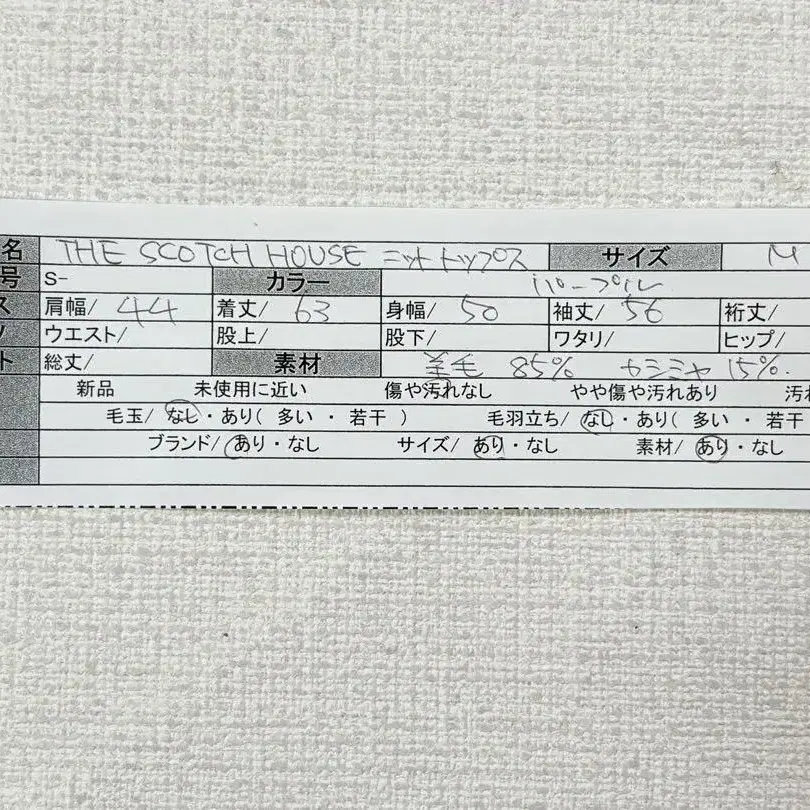 名 THE SCOTCH HOUSE ニットトップス サイズ M
号 S- カラー パープル
ス 肩幅/ 44 着丈/ 63 身幅/ 50 袖丈/ 56 裄丈/
ウエスト/ 股上/ 股下/ ワタリ/ ヒップ/
ト 総丈/ 素材 羊毛 85% カシミヤ 15%.
新品 未使用に近い 傷や汚れなし やや傷や汚れあり 汚れ
毛玉/ なし・あり( 多い ・ 若干 ) 毛羽立ち/ なし・あり( 多い ・ 若干
ブランド/ あり・なし サイズ/ あり・なし 素材/ あり・なし